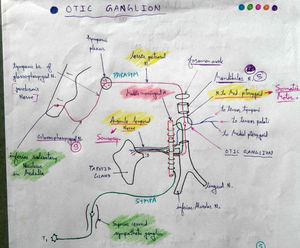 OTIC GANGLION
Tympanic
plexus
Lesser petrosal
N.
Tympanic br. of
glossopharyngeal N.
Jacobson's
Nerve
PARASYM
Foramen ovale
Mandibular N.
Middle meningeal A.
N. to Med pterygoid
Somatic
Motor
Auriculo temporal
Nerve
Sensory
Glossopharyngeal N.
to tensor tympani
to tensor palati
to Medial pterygoid
PAROTID
GLAND
OTIC GANGLION
inferior salivatory
Nucleus
in Medulla
SYMPA
Lingual N.
inferior Alveolar N.
Superior cervical
sympathetic ganglion
T₁